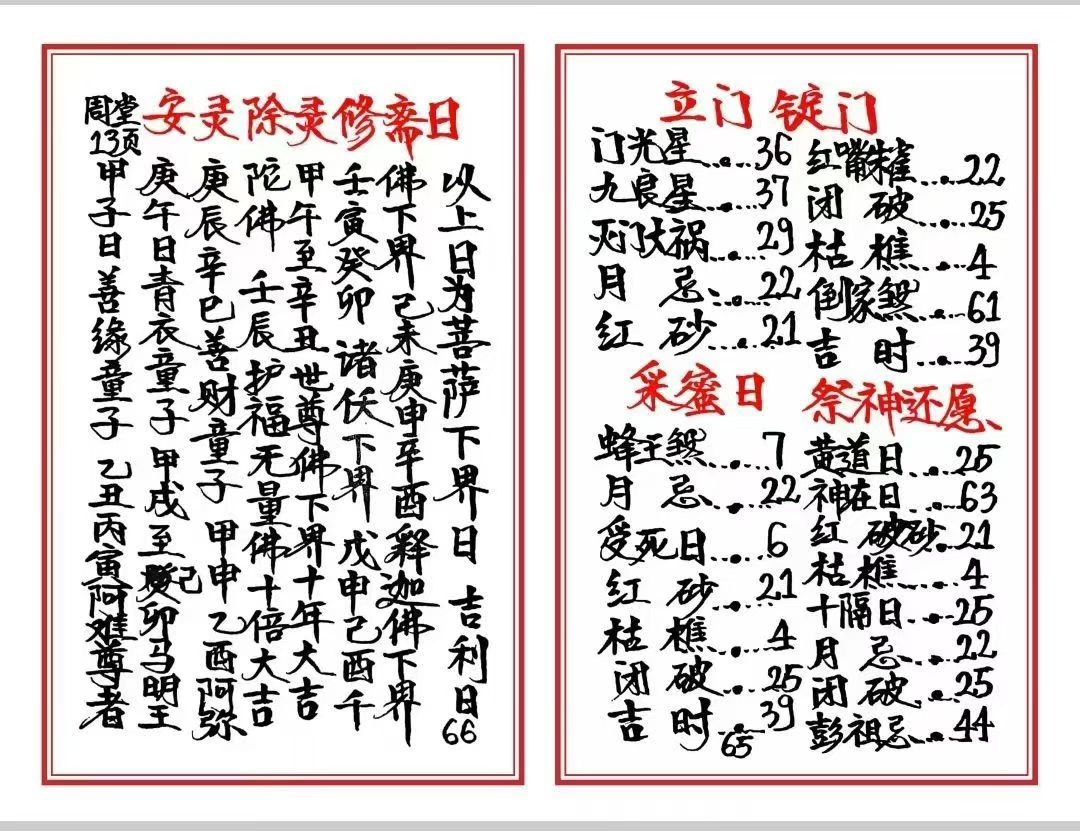 周堂
13页
安灵除灵修斋日
甲子日善缘童子 乙丑丙寅阿难尊者
庚午日青衣童子 甲戌至己卯马明王
庚辰辛巳善财童子 甲申乙酉阿弥
陀佛 壬辰护福无量佛十倍大吉
甲午至辛丑世尊佛下界十年大吉
壬寅癸卯 诸伏下界 戊申己酉千
佛下界 己未庚申辛酉释迦佛下界
以上日为菩萨下界日 吉利日
66
立门 锭门
门光星......36
九良星......37
灭门大祸......29
月 忌......22
红 砂......21
红嘴朱雀......22
闭 破......25
枯 樵......4
倒家煞......61
吉 时......39
采蜜日
蜂王煞......7
月 忌......22
受死日......6
红 砂......21
枯 樵......4
闭 破......25
吉 时......39
祭神还愿
黄道日......25
神在日......63
红 砂......21
枯樵......4
十隔日......25
月 忌......22
闭 破......25
彭祖忌......44
65